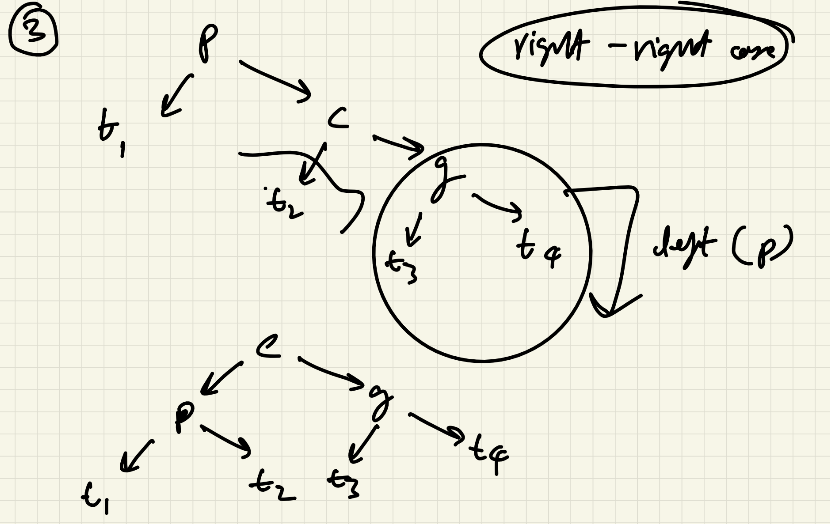 ③
right - right case
p
t1 c
t2 g
t3 t4
left (p)
c
p g
t1 t2 t3 t4